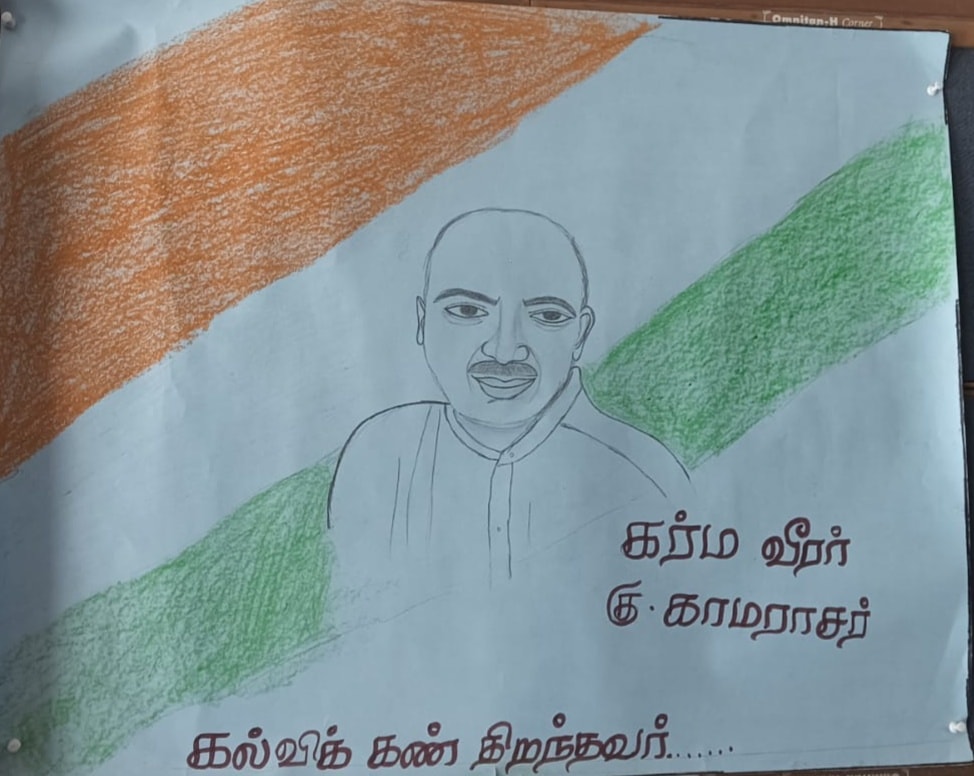 Omnitan-H Corner
கர்ம வீரர்
கு. காமராசர்
கல்விக் கண் திறந்தவர்.......